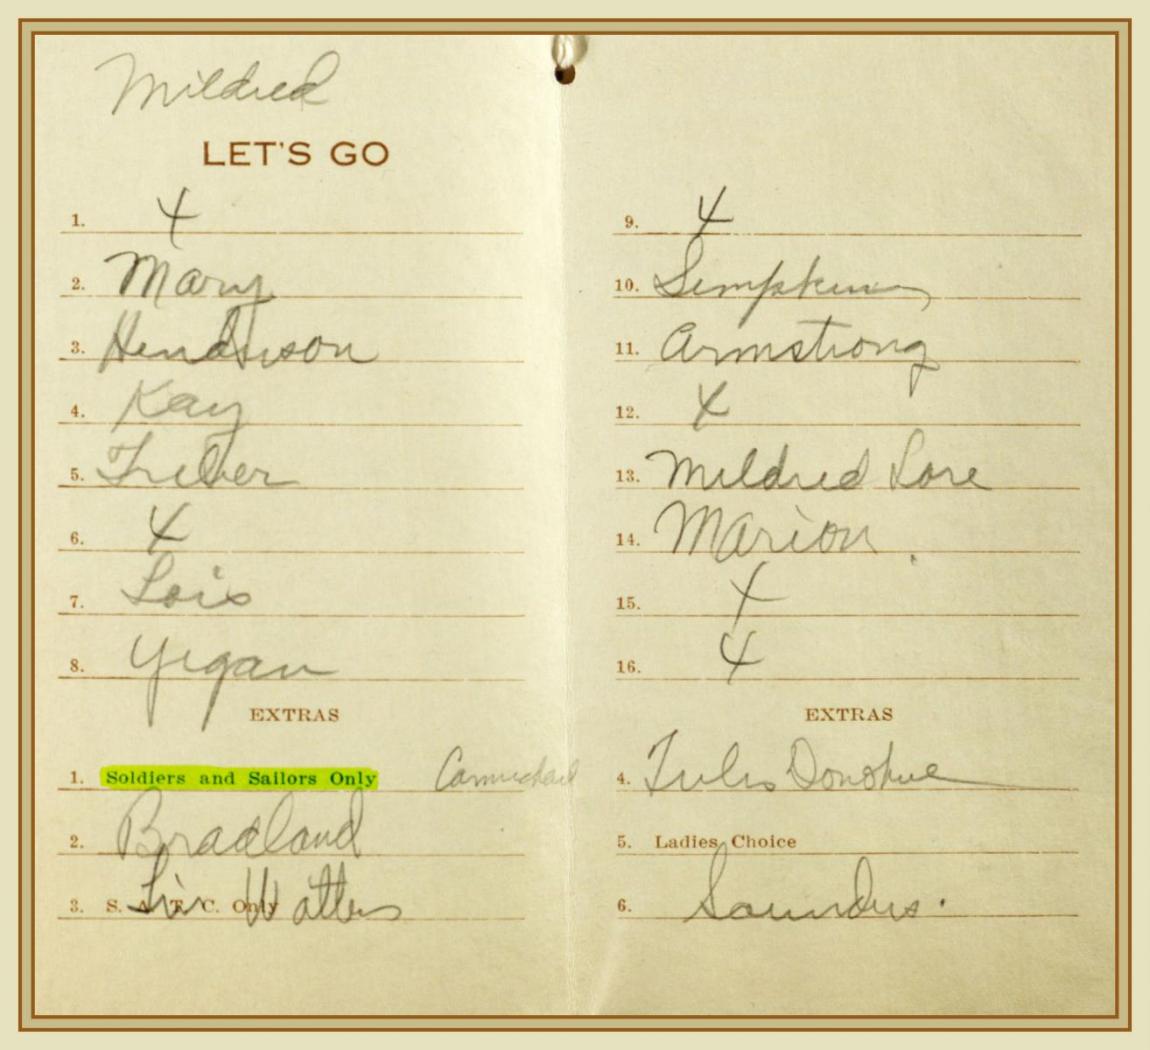 Mildred
LET'S GO
1. X
2. Mary
3. Henderson
4. Kay
5. 
6. X
7. Lois
8. Yegan
EXTRAS
1. Soldiers and Sailors Only Carmichael
2. Bradland
3. S. A. T. C. Only Watters
9. X
10. Simpkins
11. Armstrong
12. X
13. Mildred Lore
14. Marion
15. X
16. X
EXTRAS
4. Donohue
5. Ladies Choice
6. Saunders.